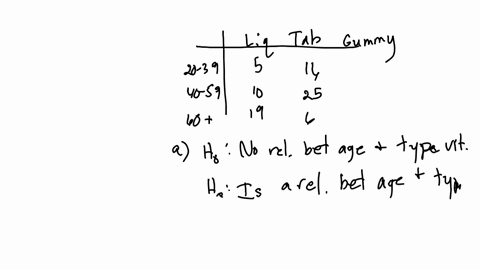 Liq Tab Gummy
20-39 5 14
40-59 10 25
60+ 19 6
a) H₀: No rel. bet age + type vit.
Hₐ: Is a rel. bet age + typ